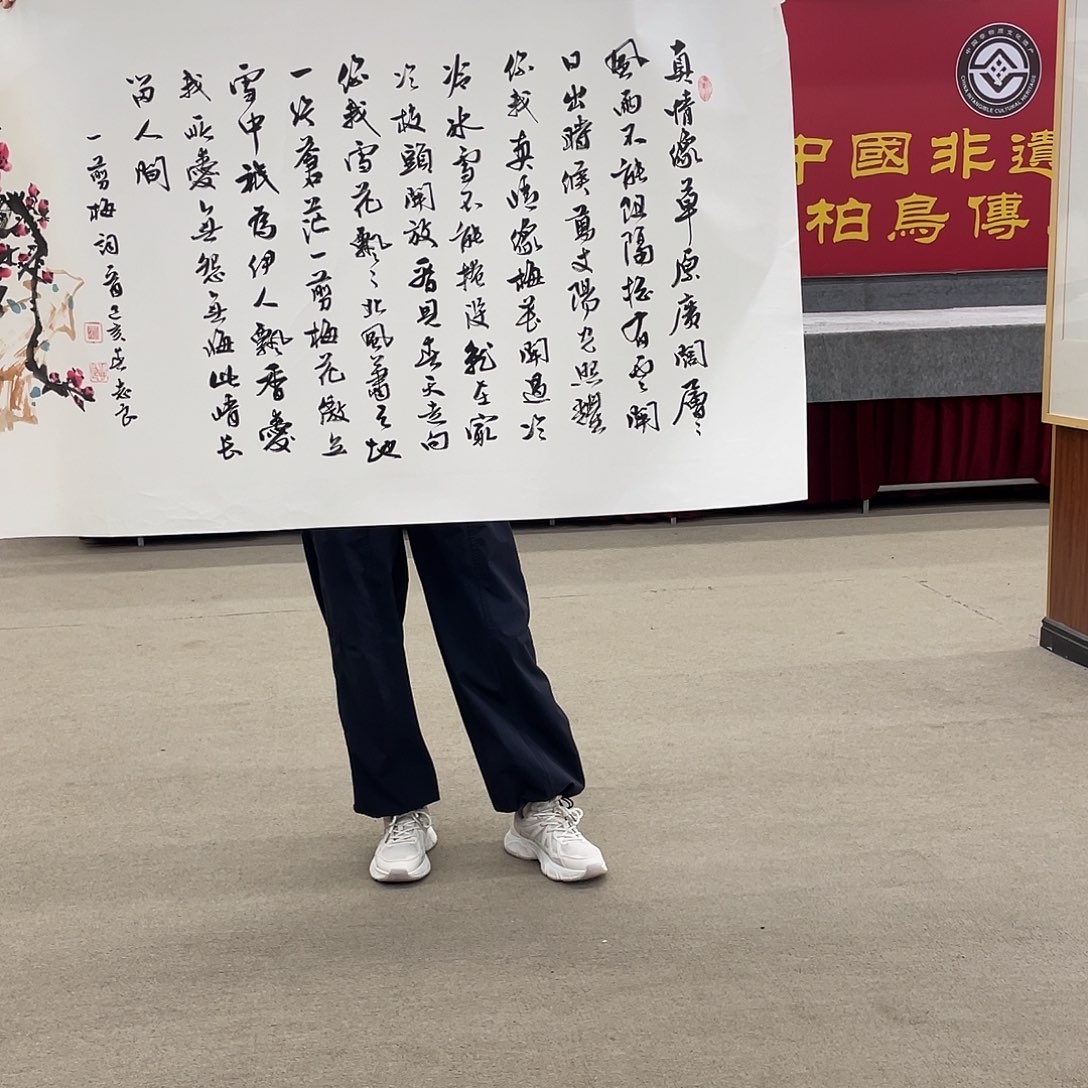 真情像草原廣闊層〻
風雨不能阻隔總有雲開
日出時候萬丈陽光照耀
您我真情像梅花開過冷
冷冰雪不能掩沒就在最
冷枝頭開放看見春天走向
您我雪花飄〻北風蕭〻天地
一片蒼茫一剪梅花傲立
雪中祇為伊人飄香愛
我所愛無怨無悔此情長
留人間
一剪梅詞 己亥春志良
中国非物质文化遗产
CHINA INTANGIBLE CULTURAL HERITAGE
中國非遺
柏鳥傳